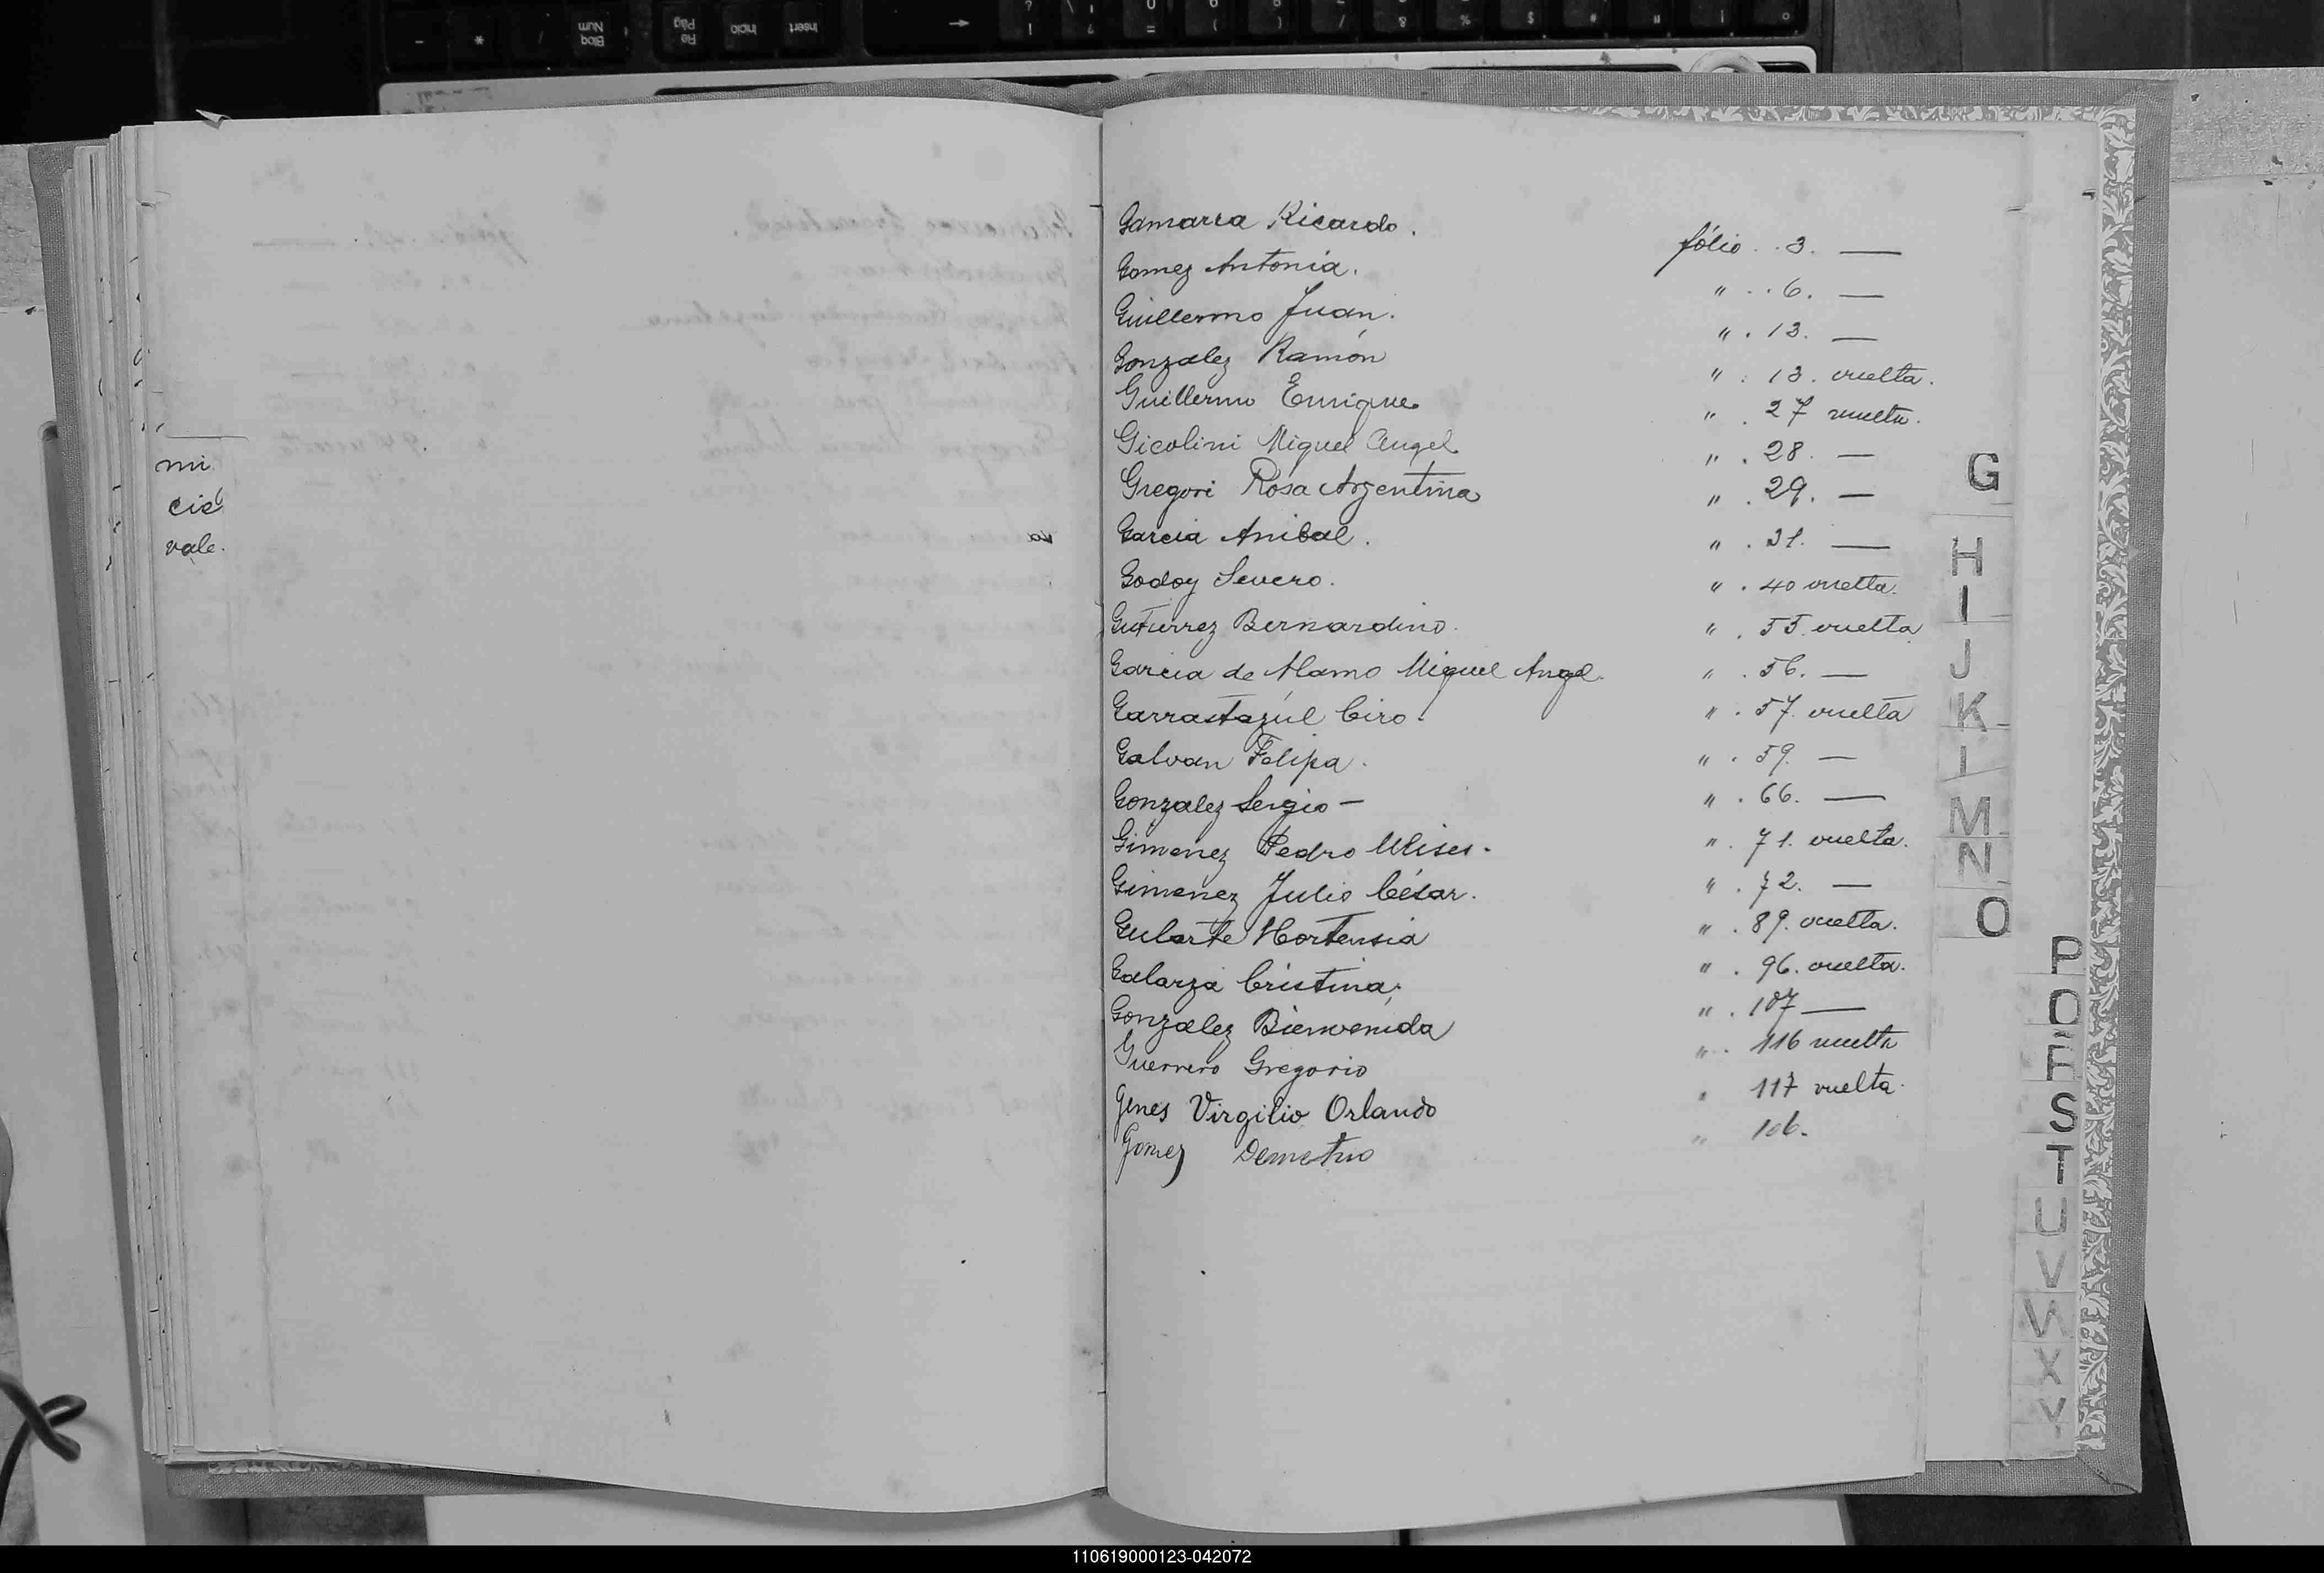 mi
cie
vale.
Gamarra Ricardo. fólio . . 3. —
Gomez Antonia. " . . 6. —
Guillermo Juan. " . 13. —
Gonzalez Ramón " . 13. vuelta.
Guillermo Enrique " . 27 vuelta.
Gicolini Miguel Angel " . 28. —
Gregori Rosa Argentina " . 29. —
Garcia Anibal. " . 31. —
Godoy Severo. " . 40 vuelta.
Gutierrez Bernardino. " . 55. vuelta
Garcia de Alamo Miguel Angel. " . 56. —
Garrastazúl Ciro. " . 57. vuelta
Galvan Felipa. " . 59. —
Gonzalez Sergio — " . 66. —
Gimenez Pedro Ulises. " . 71. vuelta.
Gimenez Julio César. " . 72. —
Gularte Hortensia " . 89. vuelta.
Galarza Cristina. " . 96. vuelta.
Gonzalez Bienvenida " . 107 —
Guerrero Gregorio " . 116 vuelta
Genes Virgilio Orlando " 117 vuelta.
Gomez Demetrio " 106.
G
H
I
J
K
M
N
O
P
S
T
U
V
W
X
Y
110619000123-042072